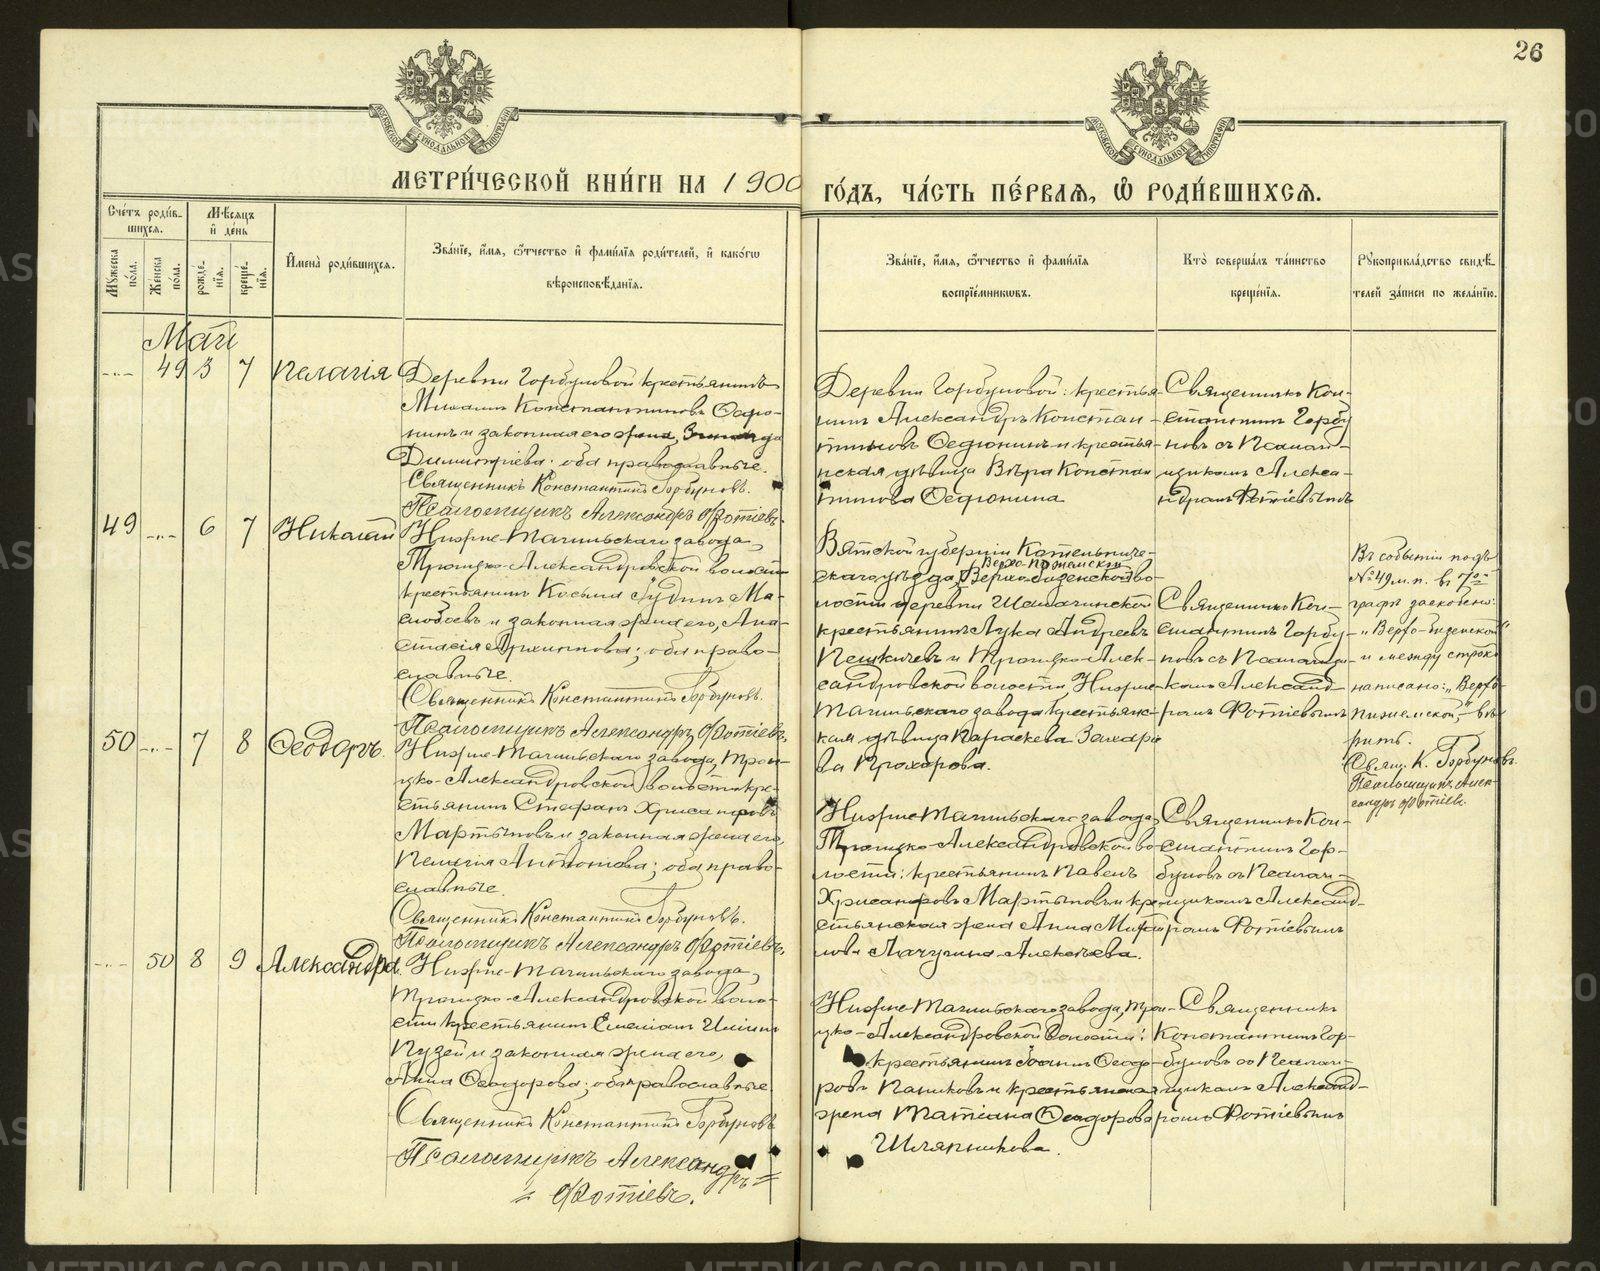 26
МОСКОВСКОЙ СѴНОДАЛЬНОЙ ТИПОГРАФІИ
МОСКОВСКОЙ СѴНОДАЛЬНОЙ ТИПОГРАФІИ
МЕТРИ́ЧЕСКОЙ КНИ́ГИ НА 1900
ГО́ДЪ, ЧА́СТЬ ПЕ́РВАЯ, Ѽ РОДИ́ВШИХСЯ.
Сче́тъ роди́в-
шихся.
Мѣ́сяцъ
и҆ де́нь
Му́жеска
по́ла.
Же́нска
по́ла.
рожде́-
нїя.
креще́-
нїя.
И҆мена̀ роди́вшихся.
Зва́нїе, и҆́мя, ѻ҆́тчество и҆ фами́лїя роди́телей, и҆ како́гѡ
вѣроисповѣ́данїя.
Зва́нїе, и҆́мя, ѻ҆́тчество и҆ фами́лїя
воспрїе́мниковъ.
Кто̀ соверша́лъ та́инство
креще́нїя.
Рукоприкла́дство свидѣ́-
телей за́писи по жела́нїю.
Май
49 3 7 Пелагія
Деревни Горбуновой крестьянинъ
Михаилъ Константиновъ Ѳедю-
нинъ и законная его жена, Зинаида
Димитріева; оба православные.
Священникъ Константинъ Горбуновъ.
Псаломщикъ Александръ Фотіевъ.
Деревни Горбуновой: крестья-
нинъ Александръ Констан-
тиновъ Ѳедюнинъ и крестья-
нская дѣвица Вѣра Констан
тинова Ѳедюнина
Священникъ Кон-
стантинъ Горбу
новъ съ Псалом-
щикомъ Алекса-
ндромъ Фотіевымъ
49 6 7 Николай
Нижне-Тагильскаго завода,
Троицко-Александровской волости
крестьянинъ Косьма Іудинъ Ма-
слобоевъ и законная жена его, Ана-
стасія Архиппова; оба право-
славные.
Священникъ Константинъ Горбуновъ.
Псаломщикъ Александръ Фотіевъ.
Вятской губерніи Котельниче-
Верхо-Пижемской
скаго уѣзда, Верхо-Бизенской во-
лости деревни
крестьянинъ Лука Андреевъ
и Троицко-Алек-
сандровской волости, Нижне-
Тагильскаго завода крестьянс-
кая дѣвица Параскева Захаро
ва Прохорова.
Священникъ Кон-
стантинъ Горбу-
новъ съ Псаломщи-
комъ Александ-
ромъ Фотіевымъ
Въ событіи подъ
№ 49 м. п. въ 7ой
графѣ заскоблено:
"Верхо-Бизенской"
и между строкъ
написано: "Верхо-
Пижемской," - вѣ-
рить.
Свящ. К. Горбуновъ.
Псаломщикъ Алек-
сандръ Фотіевъ.
50 7 8 Ѳеодоръ.
Нижне-Тагильскаго завода, Трои-
цко-Александровской волости кре-
стьянинъ Стефанъ Хрисанфовъ
Мартыновъ и законная жена его,
Пелагія Антонова; оба право-
славные.
Священникъ Константинъ Горбуновъ.
Псаломщикъ Александръ Фотіевъ.
Нижне-Тагильскаго завода,
Троицко-Александровской во-
лости: крестьянинъ Павелъ
Хрисанфовъ Мартыновъ и кре-
стьянская жена Анна
Алексѣева.
Священникъ Кон-
стантинъ Гор-
буновъ съ Псалом-
щикомъ Александ-
ромъ Фотіевымъ
50 8 9 Александра.
Нижне-Тагильскаго завода,
Троицко-Александровской воло-
сти крестьянинъ Емеліанъ Ильинъ
Пузей и законная жена его,
Анна Ѳеодорова; оба православные.
Священникъ Константинъ Горбуновъ
Псаломщикъ Александръ
Фотіевъ.
Нижне-Тагильскаго завода, Трои-
цко-Александровской волости:
крестьянинъ Іоаннъ Ѳеодо-
ровъ Пашковъ и крестьянская
жена Татіана Ѳеодорова
Шляпникова.
Священникъ
Константинъ Гор-
буновъ со Псалом-
щикомъ Александ-
ромъ Фотіевымъ